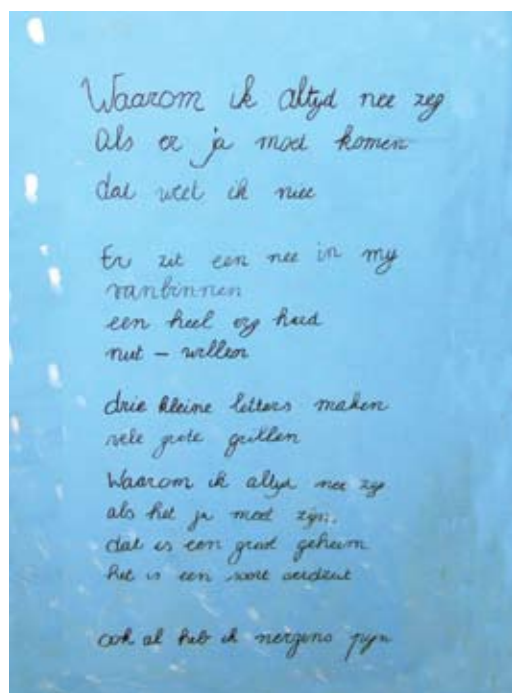 Waarom ik altyd nee zeg
Als er ja moet komen
dat weet ik niee
Er zit een nee in my
vanbinnen
een heel erg hard
niet - willen
drie kleine letters maken
vele grote grillen
Waarom ik altyd nee zeg
als het ja moet zijn.
dat is een groot geheim
het is een soort verdriet
ook al heb ik nergens pyn